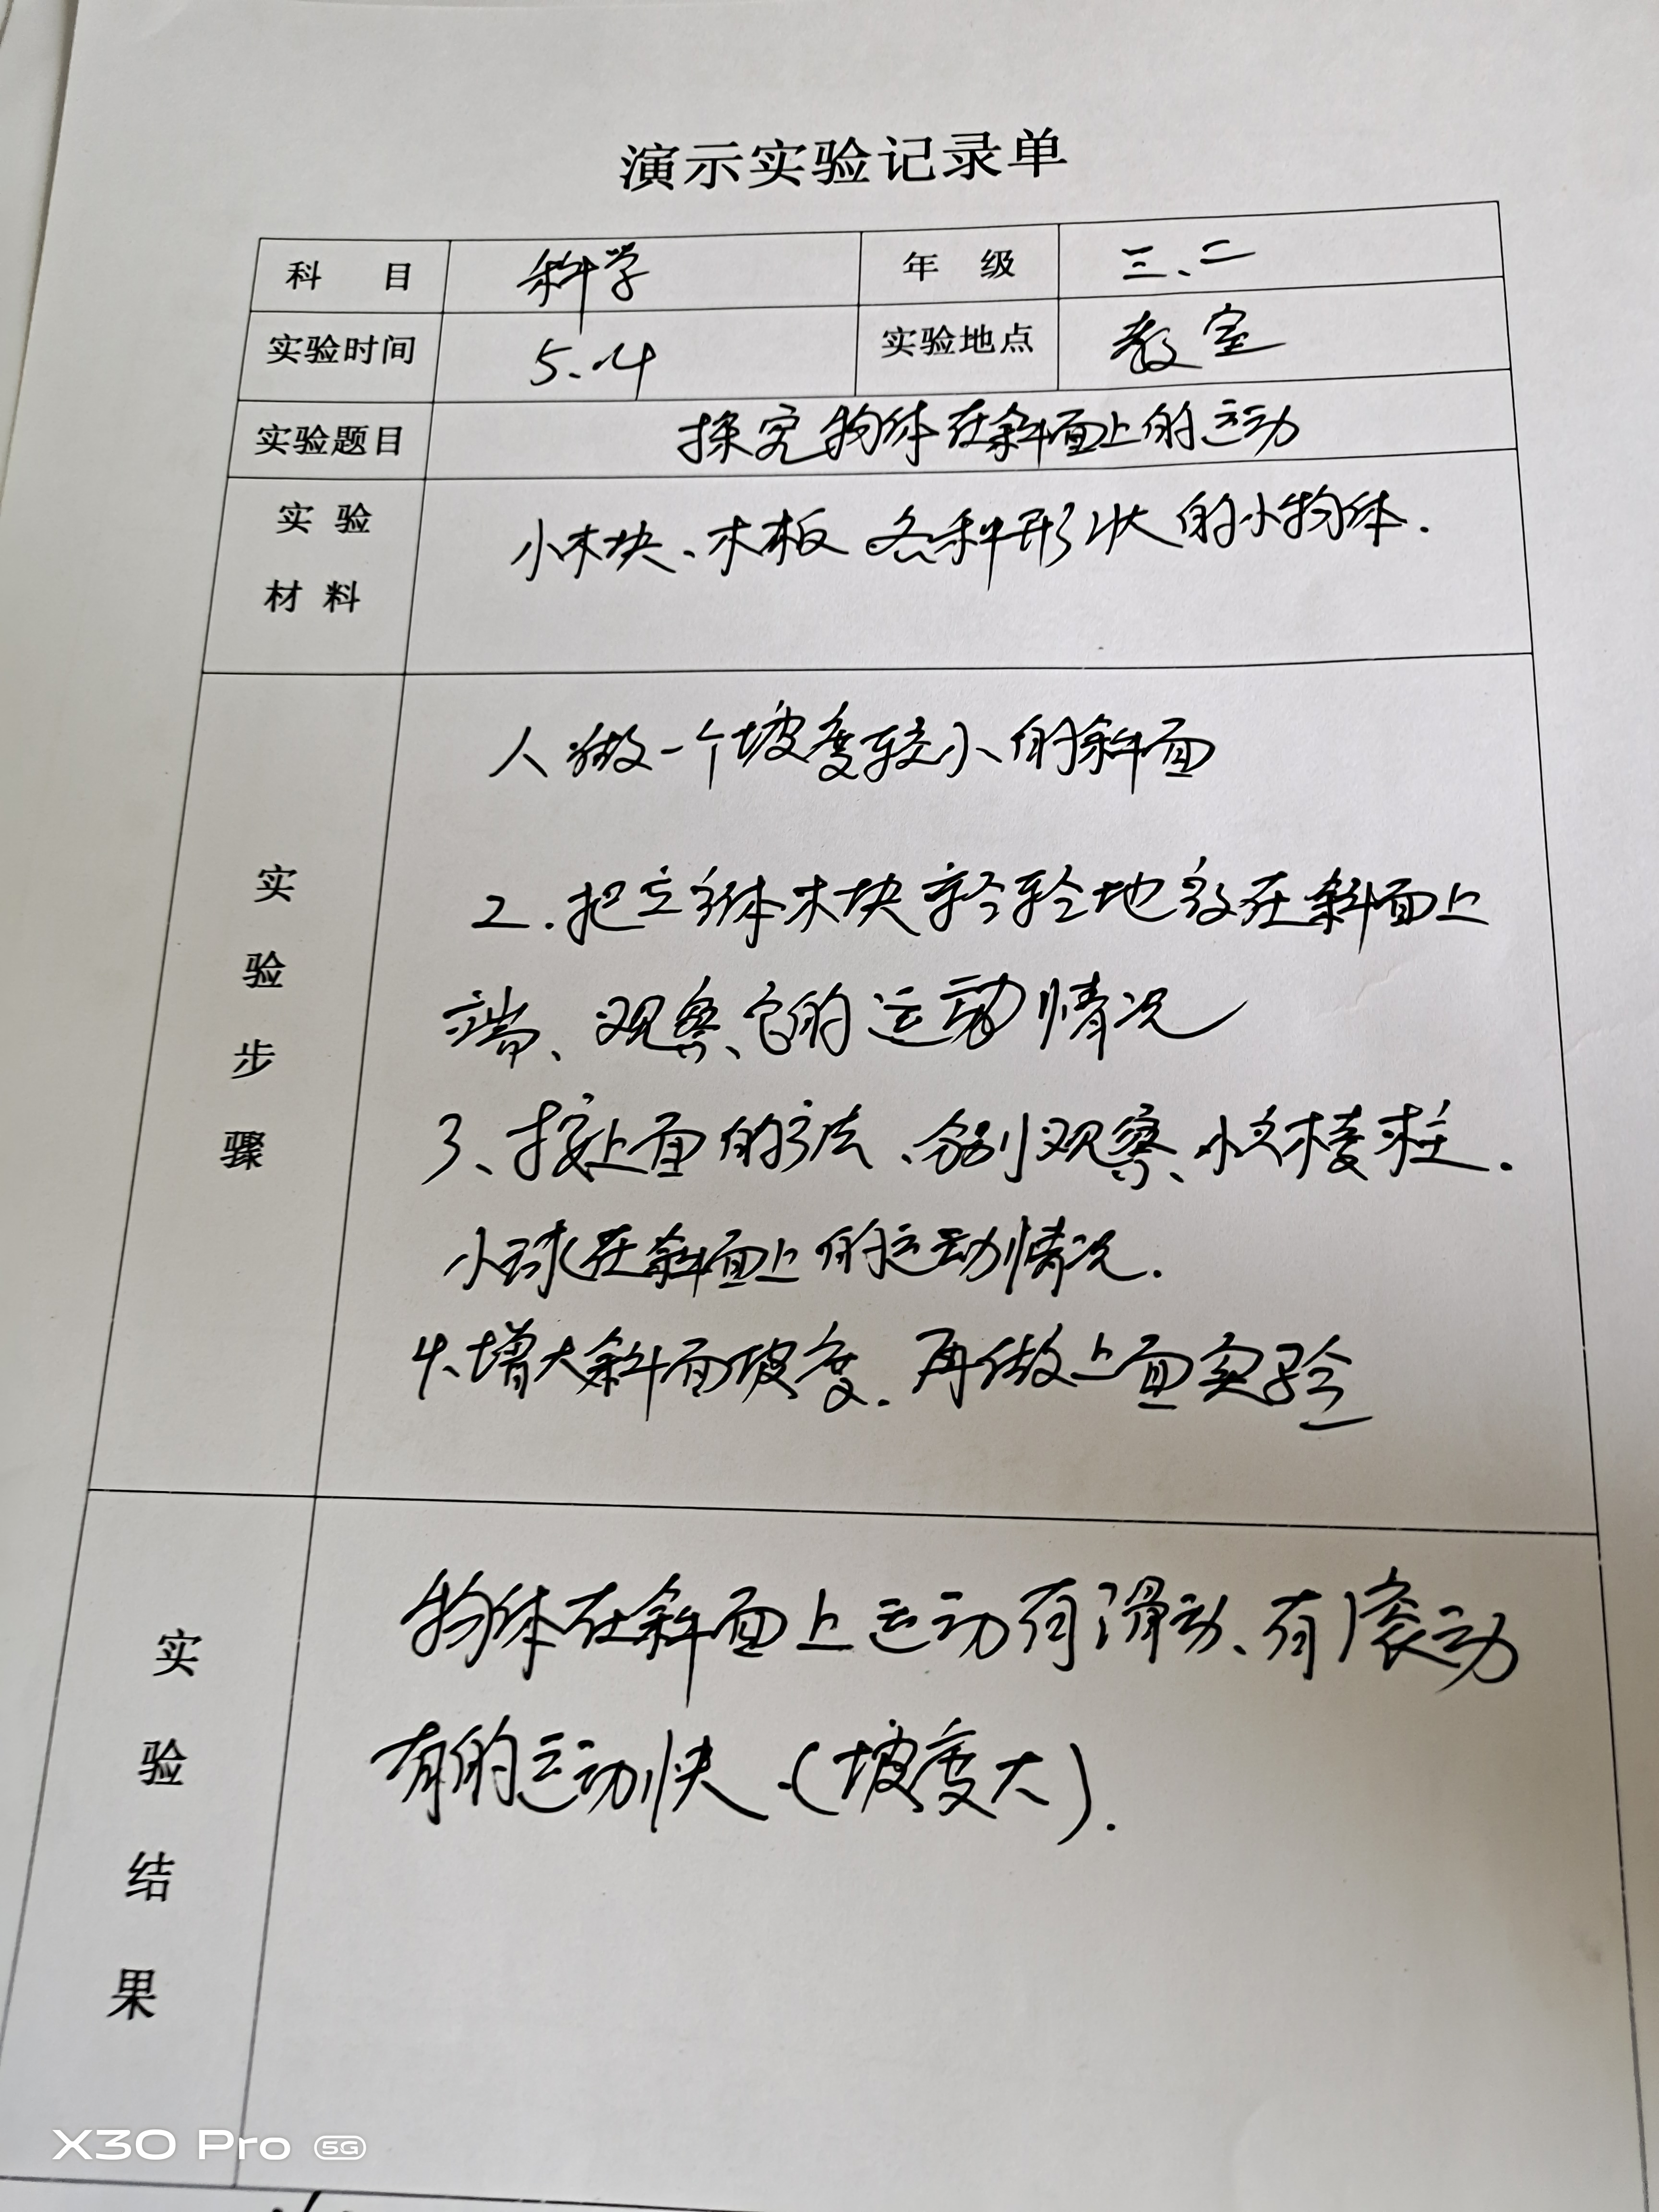 演示实验记录单
科 目 科学 年 级 三、二
实验时间 5.4 实验地点 教室
实验题目 探究物体在斜面上的运动
实 验
材 料
小木块、木板 各种形状的小物体.
实验步骤
1、做一个坡度较小的斜面
2.把立方体木块轻轻地放在斜面上
端、观察它的运动情况
3、按上面的方法、分别观察、小六棱柱.
小球在斜面上的运动情况.
4.增大斜面坡度.再做上面实验
实验结果
物体在斜面上运动有滑动、有滚动
有的运动快.(坡度大).
X30 Pro 5G